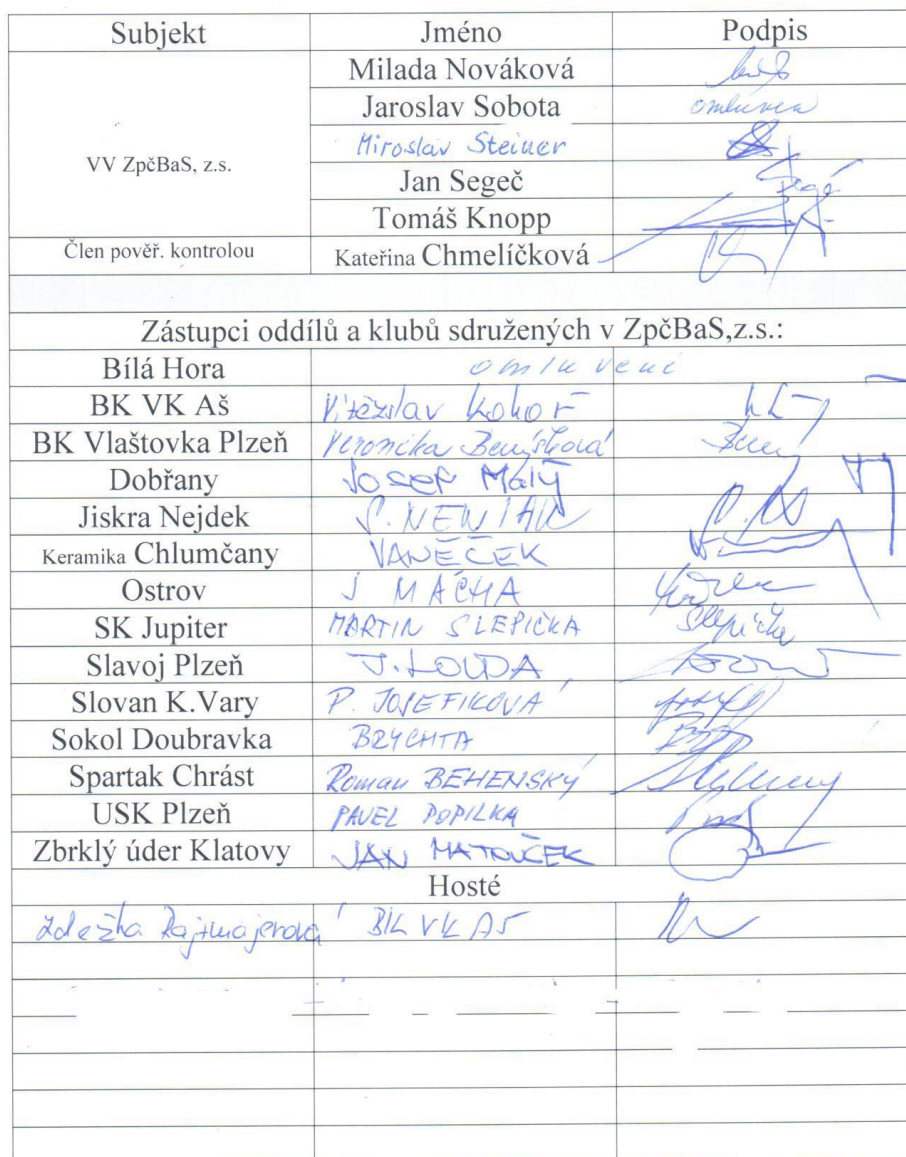 Subjekt Jméno Podpis
VV ZpčBaS, z.s.
Milada Nováková
Jaroslav Sobota omluven
Miroslav Steiner
Jan Segeč
Tomáš Knopp
Člen pověř. kontrolou Kateřina Chmelíčková
Zástupci oddílů a klubů sdružených v ZpčBaS,z.s.:
Bílá Hora omluveni
BK VK Aš Vítězslav Kohoř
BK Vlaštovka Plzeň Veronika
Dobřany Josef Malý
Jiskra Nejdek
Keramika Chlumčany VANĚČEK
Ostrov J MÁCHA
SK Jupiter MARTIN SLEPIČKA Slepička
Slavoj Plzeň J. LOUDA
Slovan K.Vary P. JOSEFIKOVÁ
Sokol Doubravka BRYCHTA
Spartak Chrást Roman BEHENSKÝ
USK Plzeň PAVEL POPILKA
Zbrklý úder Klatovy JAN MATOUČEK
Hosté
BK VK AŠ